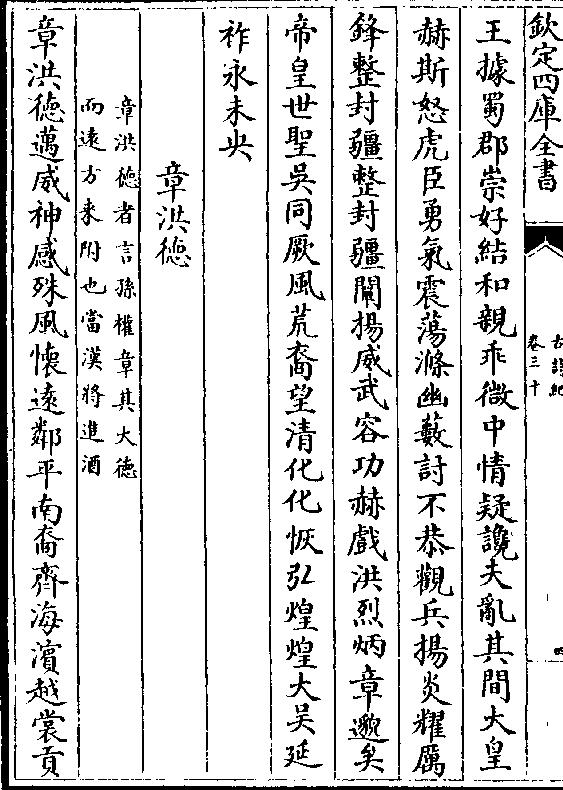 欽定四庫全書
古詩紀
卷三十
四
王據蜀郡崇好結和親乖微中情疑讒夫亂其間大皇
赫斯怒虎臣勇氣震蕩滌幽藪討不恭觀兵揚炎耀厲
鋒整封疆整封疆闡揚威武容功赫戲洪烈炳章邈矣
帝皇世聖吳同厥風荒裔望清化化恢弘煌煌大吳延
祚永未央
章洪德
章洪德者言孫權章其大德
而遠方來附也當漢將進酒
章洪德邁威神感殊風懷遠鄰平南裔齊海濵越裳貢